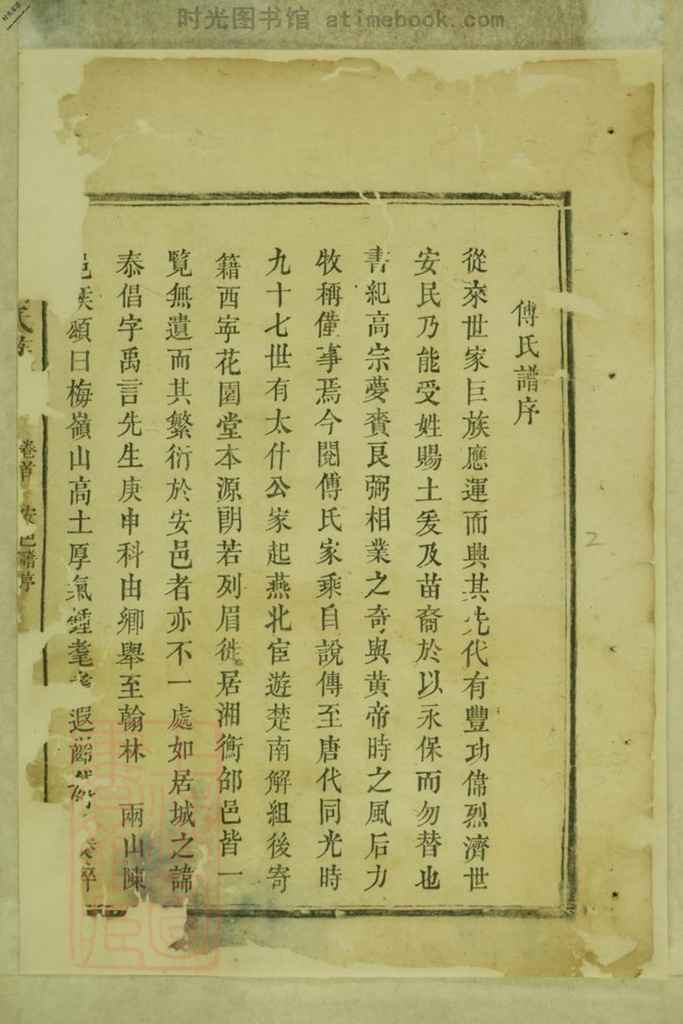 时光图书馆 atimebook.com
傅氏譜序
從來世家巨族應運而興其先代有豐功偉烈濟世
安民乃能受姓賜土爰及苗裔於以永保而勿替也
書紀高宗夢賚良弼相業之奇與黄帝時之風后力
牧稱僅事焉今閱傅氏家乘自說傳至唐代同光時
九十七世有太什公家起燕北宦遊楚南解組後寄
籍西寧花園堂本源朗若列眉徙居湘衡邵邑皆一
覧無遺而其繁衍於安邑者亦不一處如居城之諱
泰倡字禹言先生庚申科由鄉舉至翰林 兩山陳
邑侯頌曰梅嶺山高土厚氣鍾耄 遐齡
卷首 安邑譜序